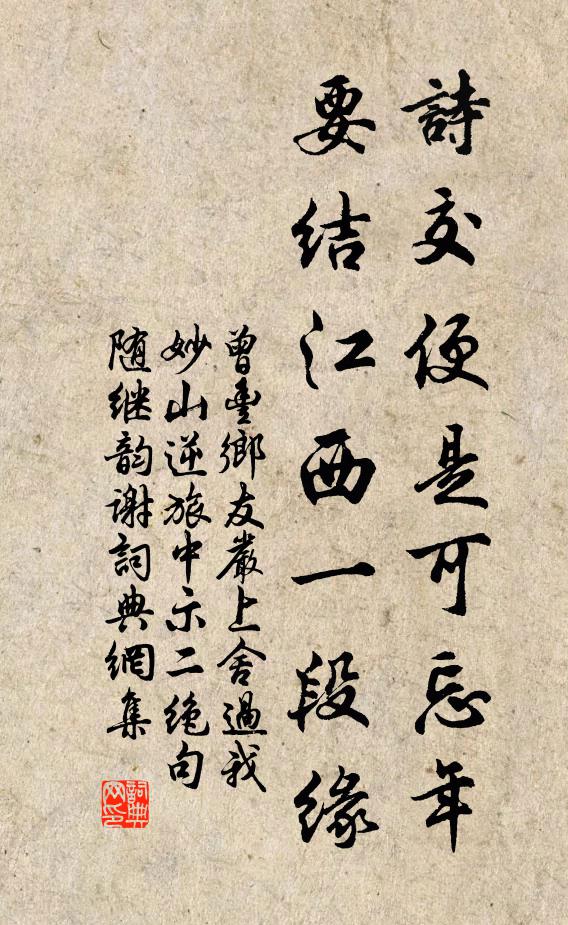 詩交便是可忘年
要结江西一段缘
曾豊鄉友嚴上舍過我
妙山逆旅中示二绝句
随继韵谢詞典網集
詞典
网印